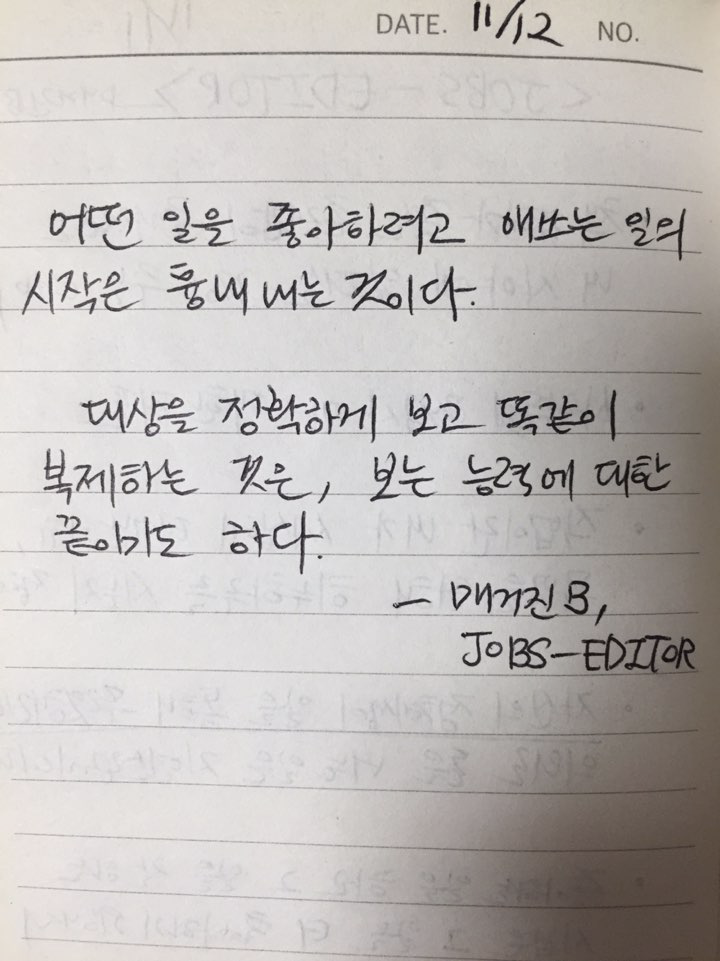 DATE. 11/12 NO.
어떤 일을 좋아하려고 애쓰는 일의
시작은 흉내 내는 것이다.
대상을 정확하게 보고 똑같이
복제하는 것은, 보는 능력에 대한
끝이기도 하다.
- 매거진 B,
JOBS-EDITOR